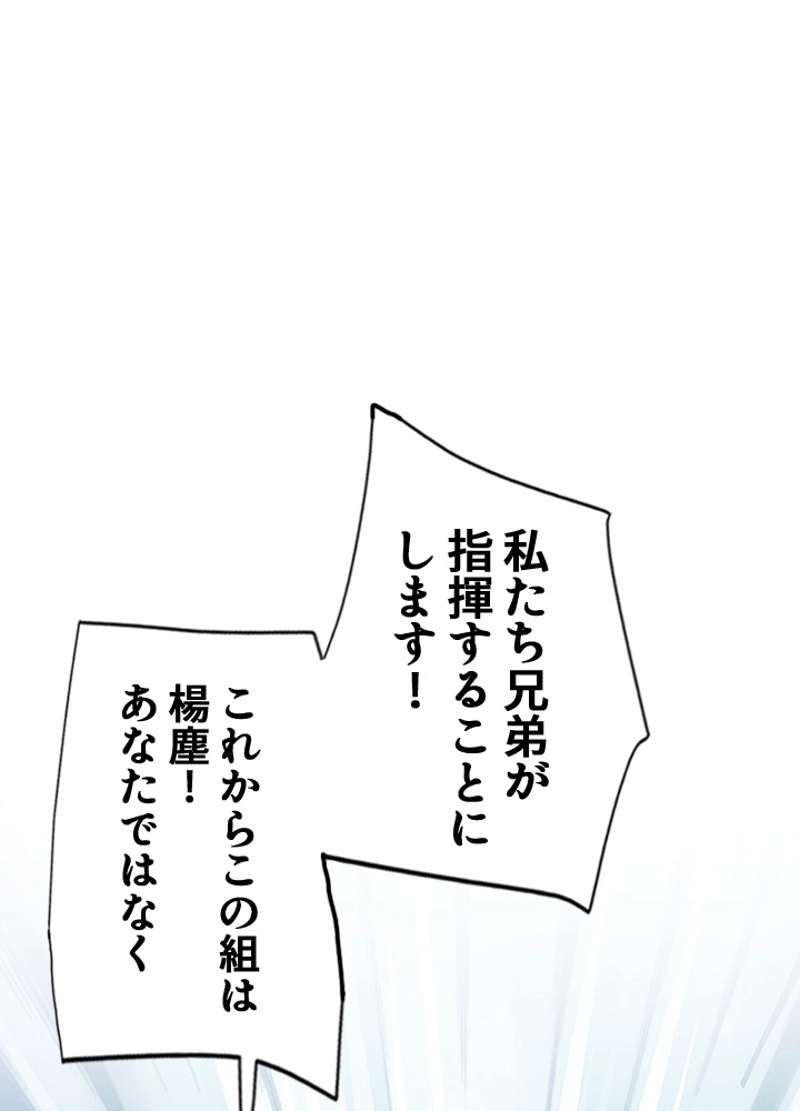 私たち兄弟が
指揮することに
します！
これからこの組は
楊塵！
あなたではなく